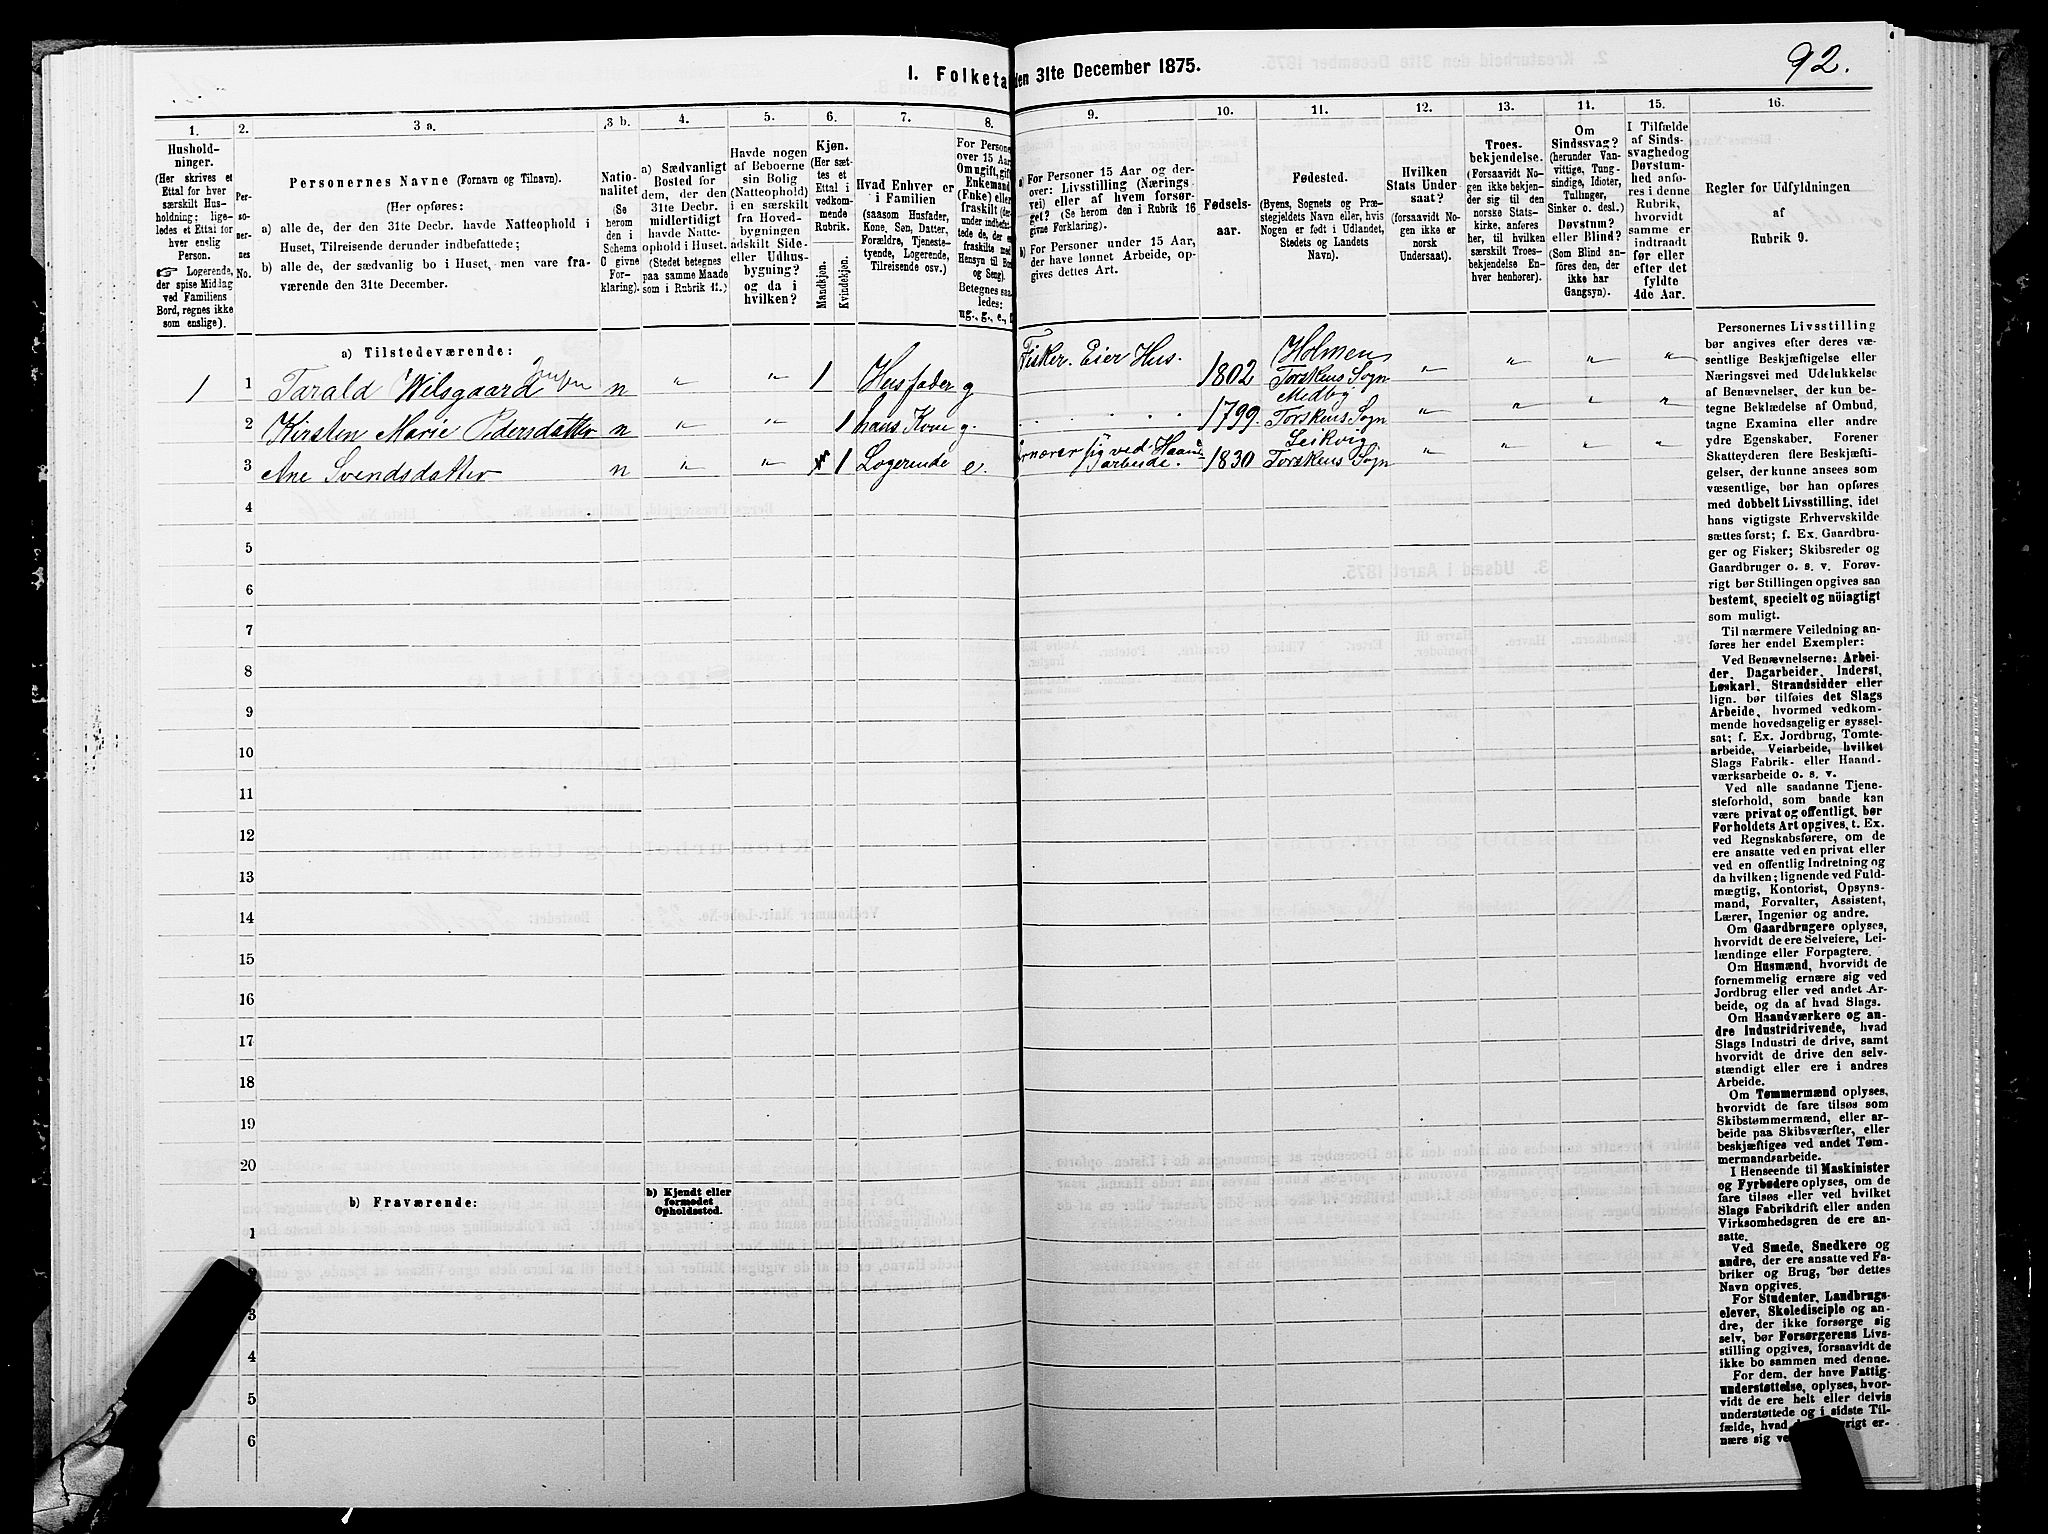 92.
I. Folketa
den 31te December 1875.
1.
2.
3 a.
3 b.
4.
5.
6.
7.
8.
9.
10.
11.
12.
13.
14.
15.
16.
Hushold-
ninger.
(Her skrives et
Ettal for hver
særskilt Hus-
holdning; lige-
ledes et Ettal for
hver enslig
Person.
☞ Logerende,
der spise Middag
ved Familiens
Bord, regnes ikke
som enslige).
Per-
so-
ner-
nes
No.
Personernes Navne (Fornavn og Tilnavn).
(Her opføres:
a) alle de, der den 31te Decbr. havde Natteophold i
Huset, Tilreisende derunder indbefattede;
b) alle de, der sædvanlig bo i Huset, men vare fra-
værende den 31te December.
Natio-
nalitet
(Se
herom
den i
Schema
C givne
For-
klaring).
a) Sædvanligt
Bosted for
dem, der den
31te Decbr.
midlertidigt
havde Natte-
ophold i Huset.
(Stedet betegnes
paa samme Maade
som i Rubrik 11.)
Havde nogen
af Beboerne
sin Bolig
(Natteophold)
i en særskilt
fra Hoved-
bygningen
adskilt Side-
eller Udhus-
bygning?
og da i
hvilken?
Kjøn.
(Her sæt-
tes et
Ettal i
vedkom-
mende
Rubrik.
Mandkjøn.
Kvindekjøn.
Hvad Enhver er
i Familien
(saasom Husfader,
Kone, Søn, Datter,
Forældre, Tjeneste-
tyende, Logerende,
Tilreisende osv.)
For Persone
over 15 Aar
Om ugift, gift
Enkemand
(Enke) eller
fraskilt (der-
under indbefat-
tede de, der ere
fraskilte med
Hensyn til Bord
og Seng).
Betegnes saa-
ledes:
ug., g., e., f.
a) For Personer 15 Aar og der-
over: Livsstilling (Nærings-
vei) eller af hvem forsør-
get? (Se herom den i Rubrik 16
givne Forklaring).
b) For Personer under 15 Aar,
der have lønnet Arbeide, op-
gives dettes Art.
Fødsels-
aar.
Fødested.
(Byens, Sognets og Præ-
stegjeldets Navn eller, hvis
Nogen er født i Udlandet,
Stedets og Landets
Navn).
Hvilken
Stats Under-
saat?
(forsaavidt No-
gen ikke er
norsk
Undersaat).
Troes-
bekjendelse.
(Forsaavidt No-
gen ikke bekjen-
der sig til den
norske Stats-
kirke, anføres
her, til hvilken
særskilt Troes-
bekjendelse En-
hver henhører).
Om
Sindssvag?
(herunder Van-
vittige, Tung-
sindige, Idioter,
Tullinger,
Sinker o. desl.)
Døvstum?
eller Blind?
(Som Blind an-
føres den, der
ikke har
Gangsyn).
I Tilfælde
af Sinds-
svaghed og
Døvstum-
hed an-
føres i denne
Rubrik,
hvorvidt
samme er
indtraadt
før eller
efter det
fyldte
4de Aar.
Regler for Udfyldningen
af
Rubrik 9.
a) Tilstedeværende:
1 1 Tarald Wilsgaard Jensen n " " 1 Husfader g Fisker. Eier Hus. 1802 Holmen Torskens Sogn " " " "
2 Kirsten Marie Pedersdatter n " " 1 hans Kone g. 1799. Medby Torskens Sogn " " " "
3 Ane Svendsdatter n " " 1 Logerende e. ernærer sig ved Haand arbeide. 1830 Leikvig Torskens Sogn " " " "
4
5
6
7
8
9
10
11
12
13
14
15
16
17
18
19
20
b) Fraværende:
b) Kjendt eller
formodet
Opholdssted.
1
3
4
5
6
Personernes Livsstilling
bør angives efter deres væ-
sentlige Beskjæftigelse eller
Næringsvei med Udelukkelse
af Benævnelser, der kun be-
tegne Beklædelse af Ombud,
tagne Examina eller andre
ydre Egenskaber. Forener
Skatteyderen flere Beskjæfti-
gelser, der kunne ansees som
væsentlige, bør han opføres
med dobbelt Livsstilling, idet
hans vigtigste Erhvervskilde
sættes først; f. Ex. Gaardbru-
ger og Fisker; Skibsreder og
Gaardbruger o. s. v. Forøv-
rigt bør Stillingen opgives saa
bestemt, specielt og nöiagtigt
som muligt.
Til nærmere Veiledning an-
føres her endel Exempler:
Ved Benævnelserne: Arbei-
der, Dagarbeider, Inderst,
Løskarl, Strandsidder eller
lign. bør tilføies det Slags
Arbeide, hvormed vedkom-
mende hovedsagelig er syssel-
sat; f. Ex. Jordbrug, Tomte-
arbeide, Veiarbeide, hvilket
Slags Fabrik- eller Haand-
værksarbeide o. s. v.
Ved alle saadanne Tjene-
steforhold, som baade kan
være privat og offentligt, bør
Forholdets Art opgives, t. Ex.
ved Regnskabsførere, om de
ere ansatte ved en privat eller
ved en offentlig Indretning og
da hvilken; lignende ved Fuld-
mægtig, Kontorist, Opsyns-
mand, Forvalter, Assistent,
Lærer, Ingeniør og andre.
Om Gaardbrugere oplyses,
hvorvidt de ere Selveiere, Lei-
lændinge eller Forpagtere.
Om Husmænd, hvorvidt de
fornemmelig ernære sig ved
Jordbrug eller ved andet Ar-
beide, og da af hvad Slags.
Om Haandværkere og an-
dre Industridrivende, hvad
Slags Industri de drive, samt
hvorvidt de drive den selv-
stændigt eller ere i andres
Arbeide.
Om Tømmermænd oplyses,
hvorvidt de fare tilsøs som
Skibstømmermænd, eller ar-
beide paa Skibsværfter, eller
beskjæftiges ved andet Tøm-
mermandsarbeide.
I Henseende til Maskinister
og Fyrbødere oplyses, om de
fare tilsøs eller ved hvilket
Slags Fabrikdrift eller anden
Virksomhedsgren de ere an-
satte.
Ved Smede, Snedkere og
andre, der ere ansatte ved Fa-
briker og Brug, bør dettes
Navn opgives.
For Studenter, Landbrugs-
elever, Skoledisciple og an-
dre, der ikke forsørge sig
selv, bør Forsørgerens Livs-
stilling opgives, forsaavidt de
ikke bo sammen med denne.
For dem, der have Fattig-
understøttelse, oplyses, hvor-
vidt de ere helt eller delvis
understøttede og i sidste Til-
fælde, hvad
nære sig ve